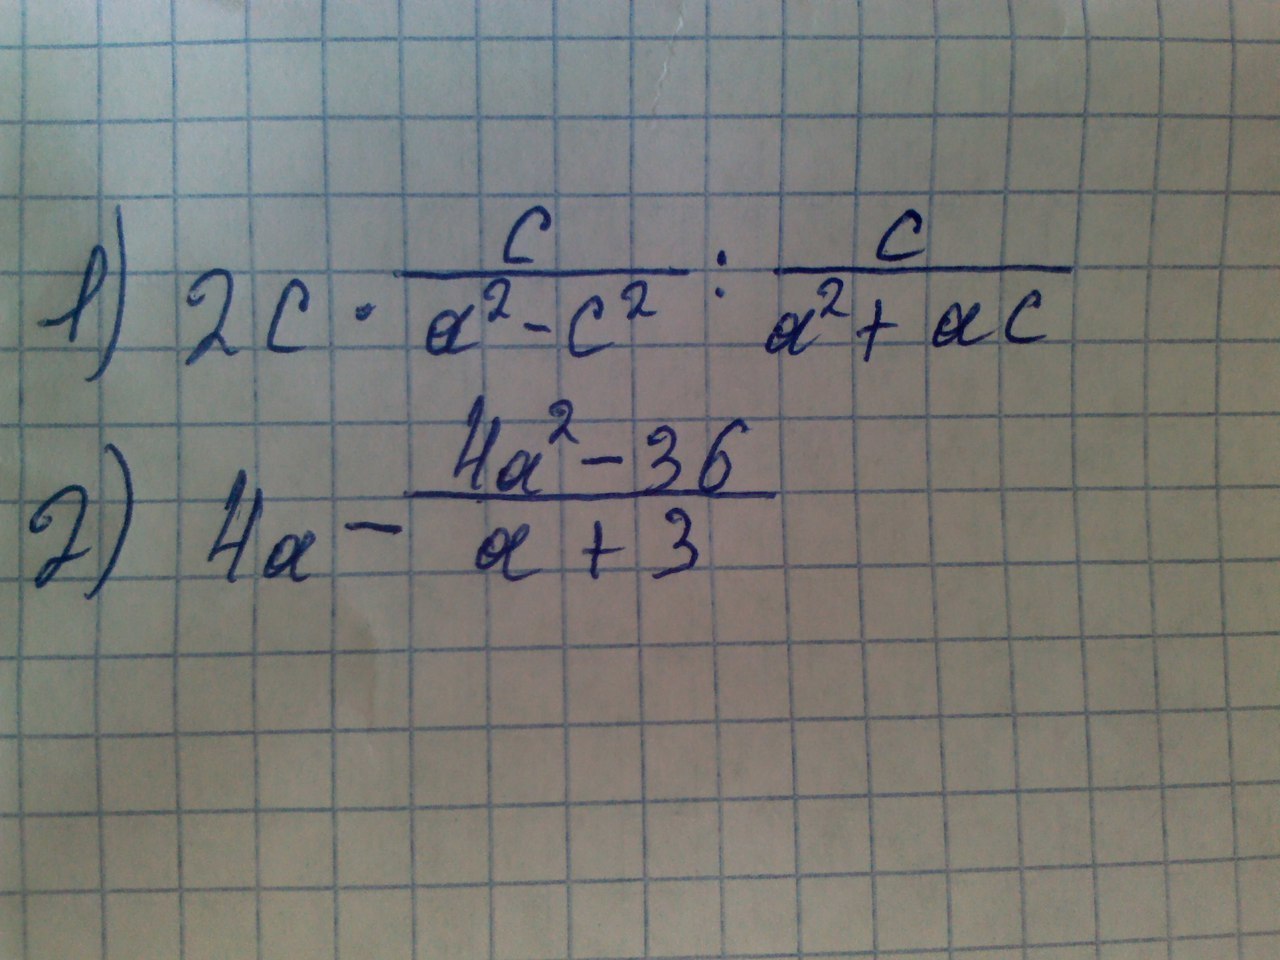 1) 2c · c/(a² - c²) : c/(a² + ac)
2) 4a - (4a² - 36)/(a + 3)